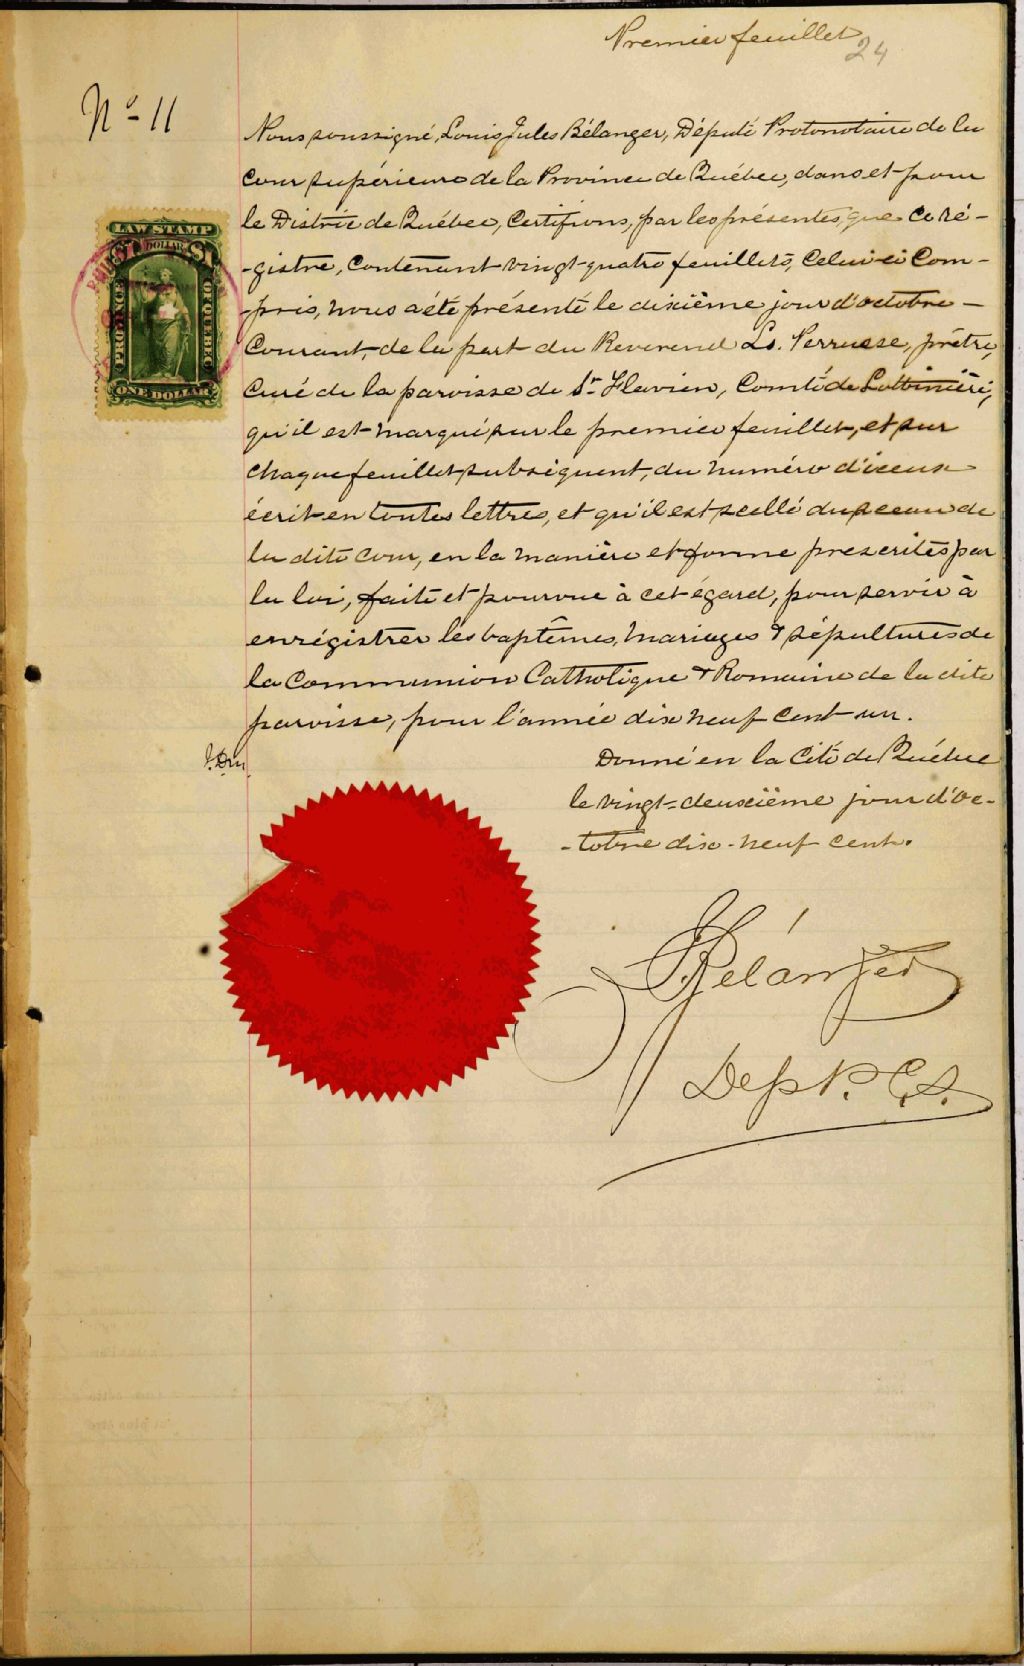 Premier feuillet
24
No - 11
Nous soussigné, Louis Jules Bélanger, Député Protonotaire de la
Cour supérieure de la Province de Québec, dans et pour
le District de Québec, Certifions, par les présentes, que ce ré-
-gistre, Contenant vingt-quatre feuillets, Celui-ci Com-
-pris, nous a été présenté le dixième jour d'octobre -
Courant, de la part du Reverend Ls. , prêtre,
Curé de la paroisse de St Flavien, Comté de Lotbinière,
qu'il est marqué sur le premier feuillet, et sur
chaque feuillet subséquent, du numéro d'iceux
écrit en toutes lettres, et qu'il est scellé du sceau de
la dite Cour, en la manière et forme prescrites par
la loi, faite et pourvue à cet égard, pour servir à
enrégistrer les baptêmes, mariages & sépultures de
la Communion Catholique & Romaine de la dite
paroisse, pour l'année dix neuf cent un.
Donné en la Cité de Québec
le vingt-deuxième jour d'oc-
-tobre dix-neuf cent.
LAW STAMP
$1 DOLLAR $1
PROVINCE OF QUEBEC
ONE DOLLAR
Bélanger
Dep P. C. S.